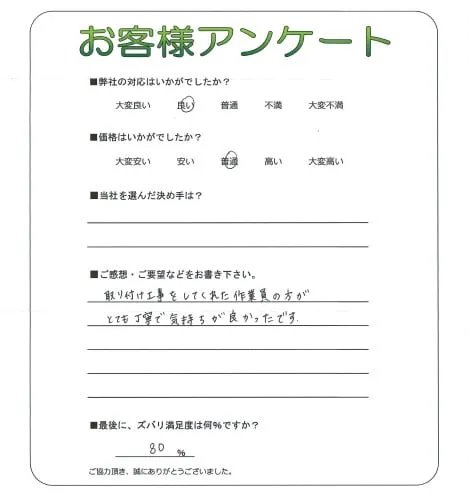 お客様アンケート
■弊社の対応はいかがでしたか？
大変良い 良い 普通 不満 大変不満
■価格はいかがでしたか？
大変安い 安い 普通 高い 大変高い
■当社を選んだ決め手は？
■ご感想・ご要望などをお書き下さい。
取り付け工事をしてくれた作業員の方が
とても丁寧で気持ちが良かったです.
■最後に、ズバリ満足度は何%ですか？
80 %
ご協力頂き、誠にありがとうございました。